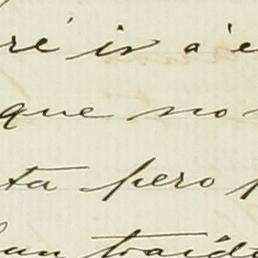 ré ir a e
que no
ta pero p
han traido